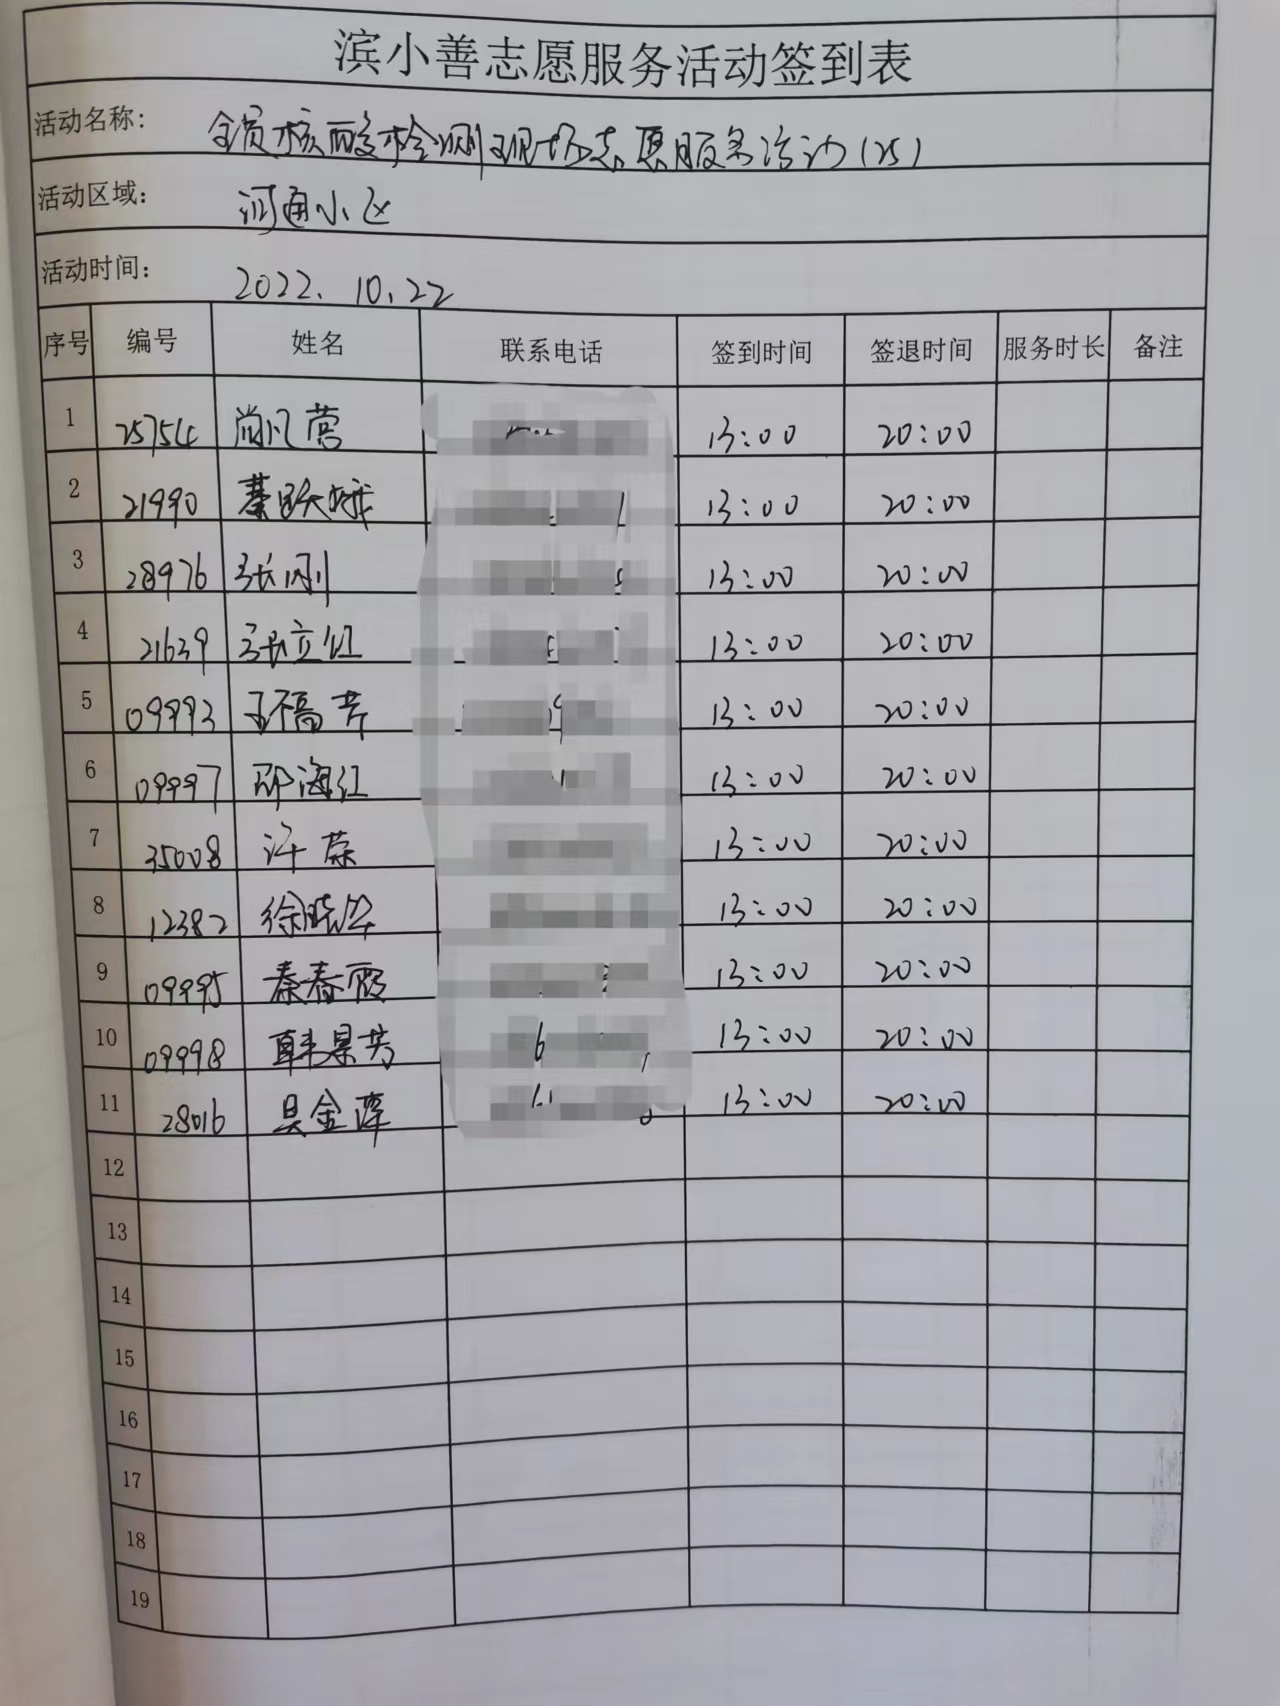 滨小善志愿服务活动签到表
活动名称: 全员核酸检测现场志愿服务活动(25)
活动区域: 河通小区
活动时间: 2022.10.22
序号 编号 姓名 联系电话 签到时间 签退时间 服务时长 备注
1 25754 尚凡营 13:00 20:00
2 21990 秦跃娥 13:00 20:00
3 28976 张刚 13:00 20:00
4 21639 张立红 13:00 20:00
5 09993 王福芳 13:00 20:00
6 09997 邵海红 13:00 20:00
7 35008 许荣 13:00 20:00
8 12382 徐晓华 13:00 20:00
9 09995 秦春霞 13:00 20:00
10 09998 韩景芳 13:00 20:00
11 28016 金 13:00 20:00
12
13
14
15
16
17
18
19